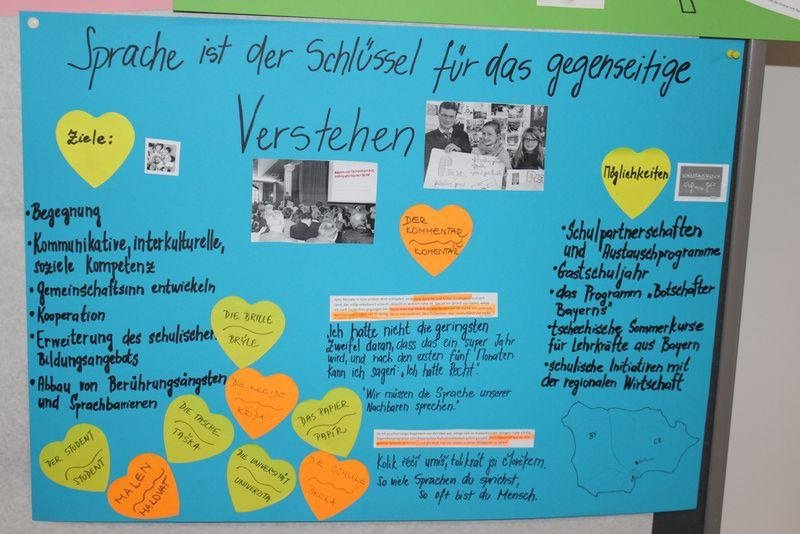 Sprache ist der Schlüssel für das gegenseitige
Verstehen
Ziele:
• Begegnung
• Kommunikative, interkulturelle,
soziele Kompetenz
• gemeinschaftsinn entwickeln
• Kooperation
• Erweiterung des schulischen
Bildungsangebots
• Abbau von Berührungsängsten
und Sprachbarrieren
DER
KOMMENTAR
KOMENTÁŘ
DIE BRILLE
BRÝLE
DIE KREIDE
KŘÍDA
DIE TASCHE
TAŠKA
DAS PAPIER
PAPÍR
DER STUDENT
STUDENT
MALEN
MALOVAT
DIE UNIVERSITÄT
UNIVERSITA
DIE SCHULE
ŠKOLA
„Ich hatte nicht die geringsten
Zweifel daran, dass das ein super Jahr
wird, und nach den ersten fünf Monaten
kann ich sagen: „Ich hatte Recht!"
"Wir müssen die Sprache unserer
Nachbaren sprechen."
Kolik řečí umíš, tolikrát jsi člověkem.
So viele Sprachen du sprichst,
so oft bist du Mensch.
Möglichkeiten
• Schulpartnerschaften
und Austauschprogramme
• Gastschuljahr
• das Programm „Botschafter
Bayerns"
• tschechische Sommerkurse
für Lehrkräfte aus Bayern
• schulische Initiativen mit
der regionalen Wirtschaft
BY
ČR